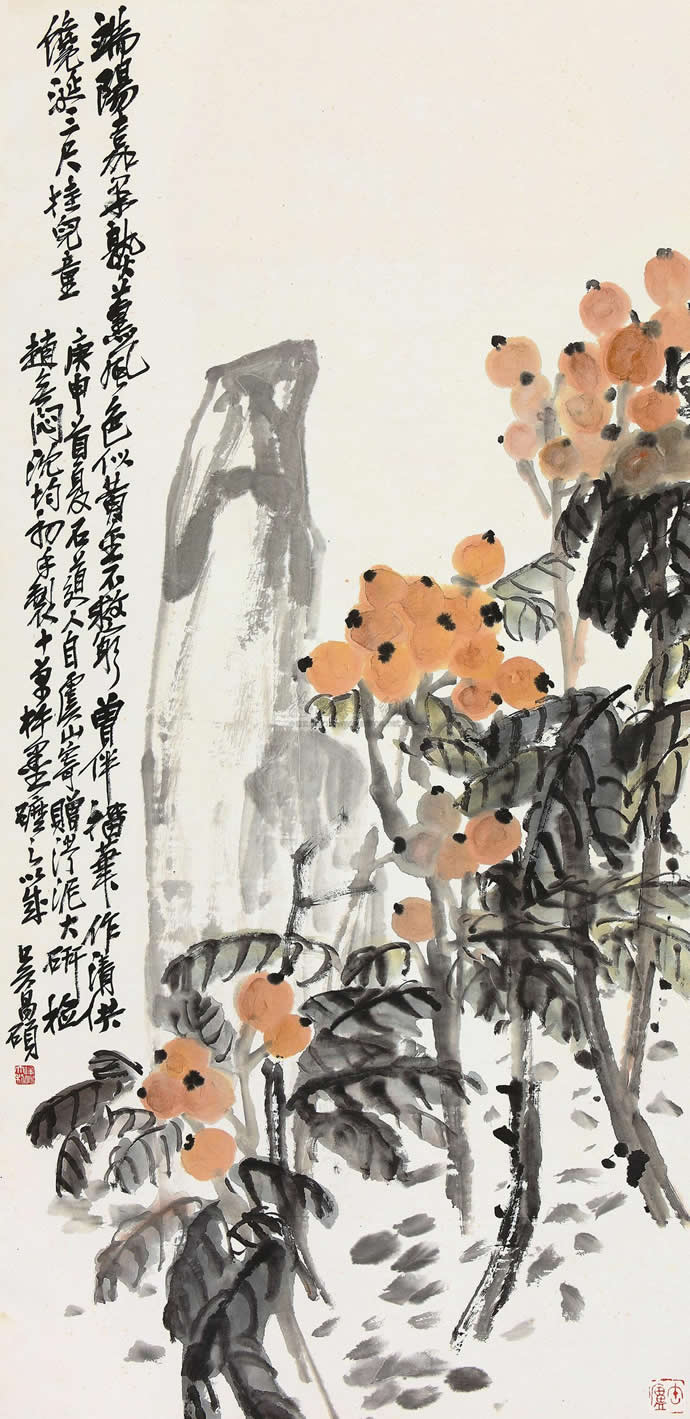 端陽嘉果熟薰風色似黃金不救窮曾伴榴華作清供
饞涎三尺挂兒童
庚申首夏石道人自虞山寄贈澄泥大研檢
趙無悶沈均初手製十萬杵墨礳之以成
吳昌碩